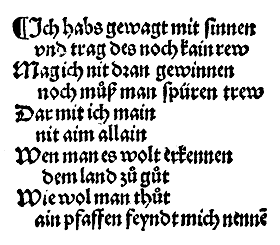 ¶Ich habs gewagt mit sinnen
vnd trag des noch kain rew
Mag ich nit dran gewinnen
noch můß man spüren trew
Dar mit ich main
nit aim allain
Wen man es wolt erkennen
dem land zů gůt
Wie wol man thůt
ain pfaffen feyndt mich nennē